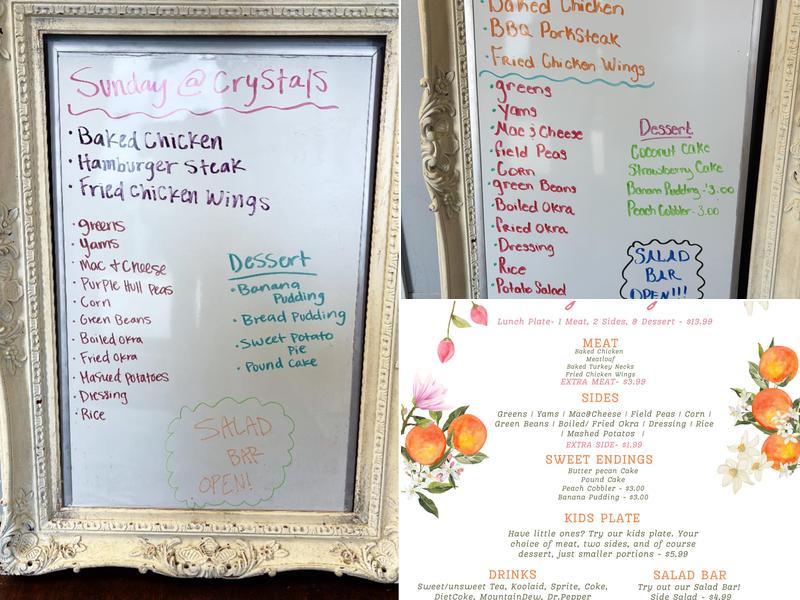 Sunday @ Crystals
• Baked Chicken
• Hamburger Steak
• Fried Chicken Wings
• greens
• Yams
• Mac + Cheese
• Purple Hull Peas
• Corn
• Green Beans
• Boiled Okra
• Fried Okra
• Mashed Potatoes
• Dressing
• Rice
Dessert
• Banana
Pudding
• Bread Pudding
• Sweet Potato
Pie
• Pound Cake
SALAD
BAR
OPEN!
• Baked Chicken
• BBQ PorkSteak
• Fried Chicken Wings
• greens
• Yams
• Mac & Cheese
• field Peas
• Corn
• green Beans
• Boiled Okra
• fried Okra
• Dressing
• Rice
• Potato Salad
Dessert
Coconut Cake
Strawberry Cake
Banana Pudding - 3.00
Peach Cobbler - 3.00
SALAD
BAR
OPEN!!!
Lunch Plate- 1 Meat, 2 Sides, & Dessert - $13.99
MEAT
Baked Chicken
Meatloaf
Baked Turkey Necks
Fried Chicken Wings
EXTRA MEAT- $3.99
SIDES
Greens | Yams | Mac&Cheese | Field Peas | Corn |
Green Beans | Boiled/ Fried Okra | Dressing | Rice
| Mashed Potatos |
EXTRA SIDE- $1.99
SWEET ENDINGS
Butter pecan Cake
Pound Cake
Peach Cobbler - $3.00
Banana Pudding - $3.00
KIDS PLATE
Have little ones? Try our kids plate. Your
choice of meat, two sides, and of course
dessert, just smaller portions - $5.99
DRINKS
Sweet/unsweet Tea, Koolaid, Sprite, Coke,
DietCoke, MountainDew, Dr.Pepper
SALAD BAR
Try out our Salad Bar!
Side Salad - $4.99